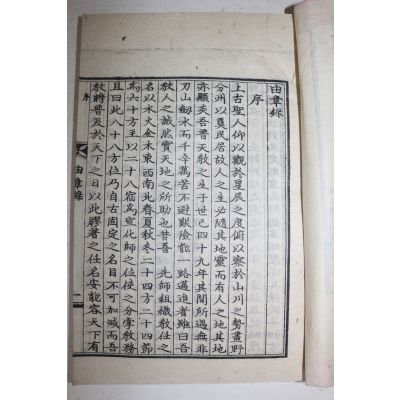 由章錄
序
上古聖人仰以觀於星辰之度俯以察於山川之勢畫野
分州以奠民居故人之生必隨其地靈而有人之地其地
亦顯矣吾普天敎之生于世已四十九年其間所遇無非
刀山劒水而千辛萬苦不避艱險能一路邁進者雖曰吾
敎人之誠然實天地之所助也昔吾 先師組織敎任之
名以水火金木東西南北春夏秋冬二十四方二十四節
爲六十方至以二十八宿爲宣化師之位使之分掌敎務
且曰此八十八方位乃自古固定之名目不可加减而吾
敎將普及於天下之日以此膠著之任名安能容天下有
序
由章錄
一